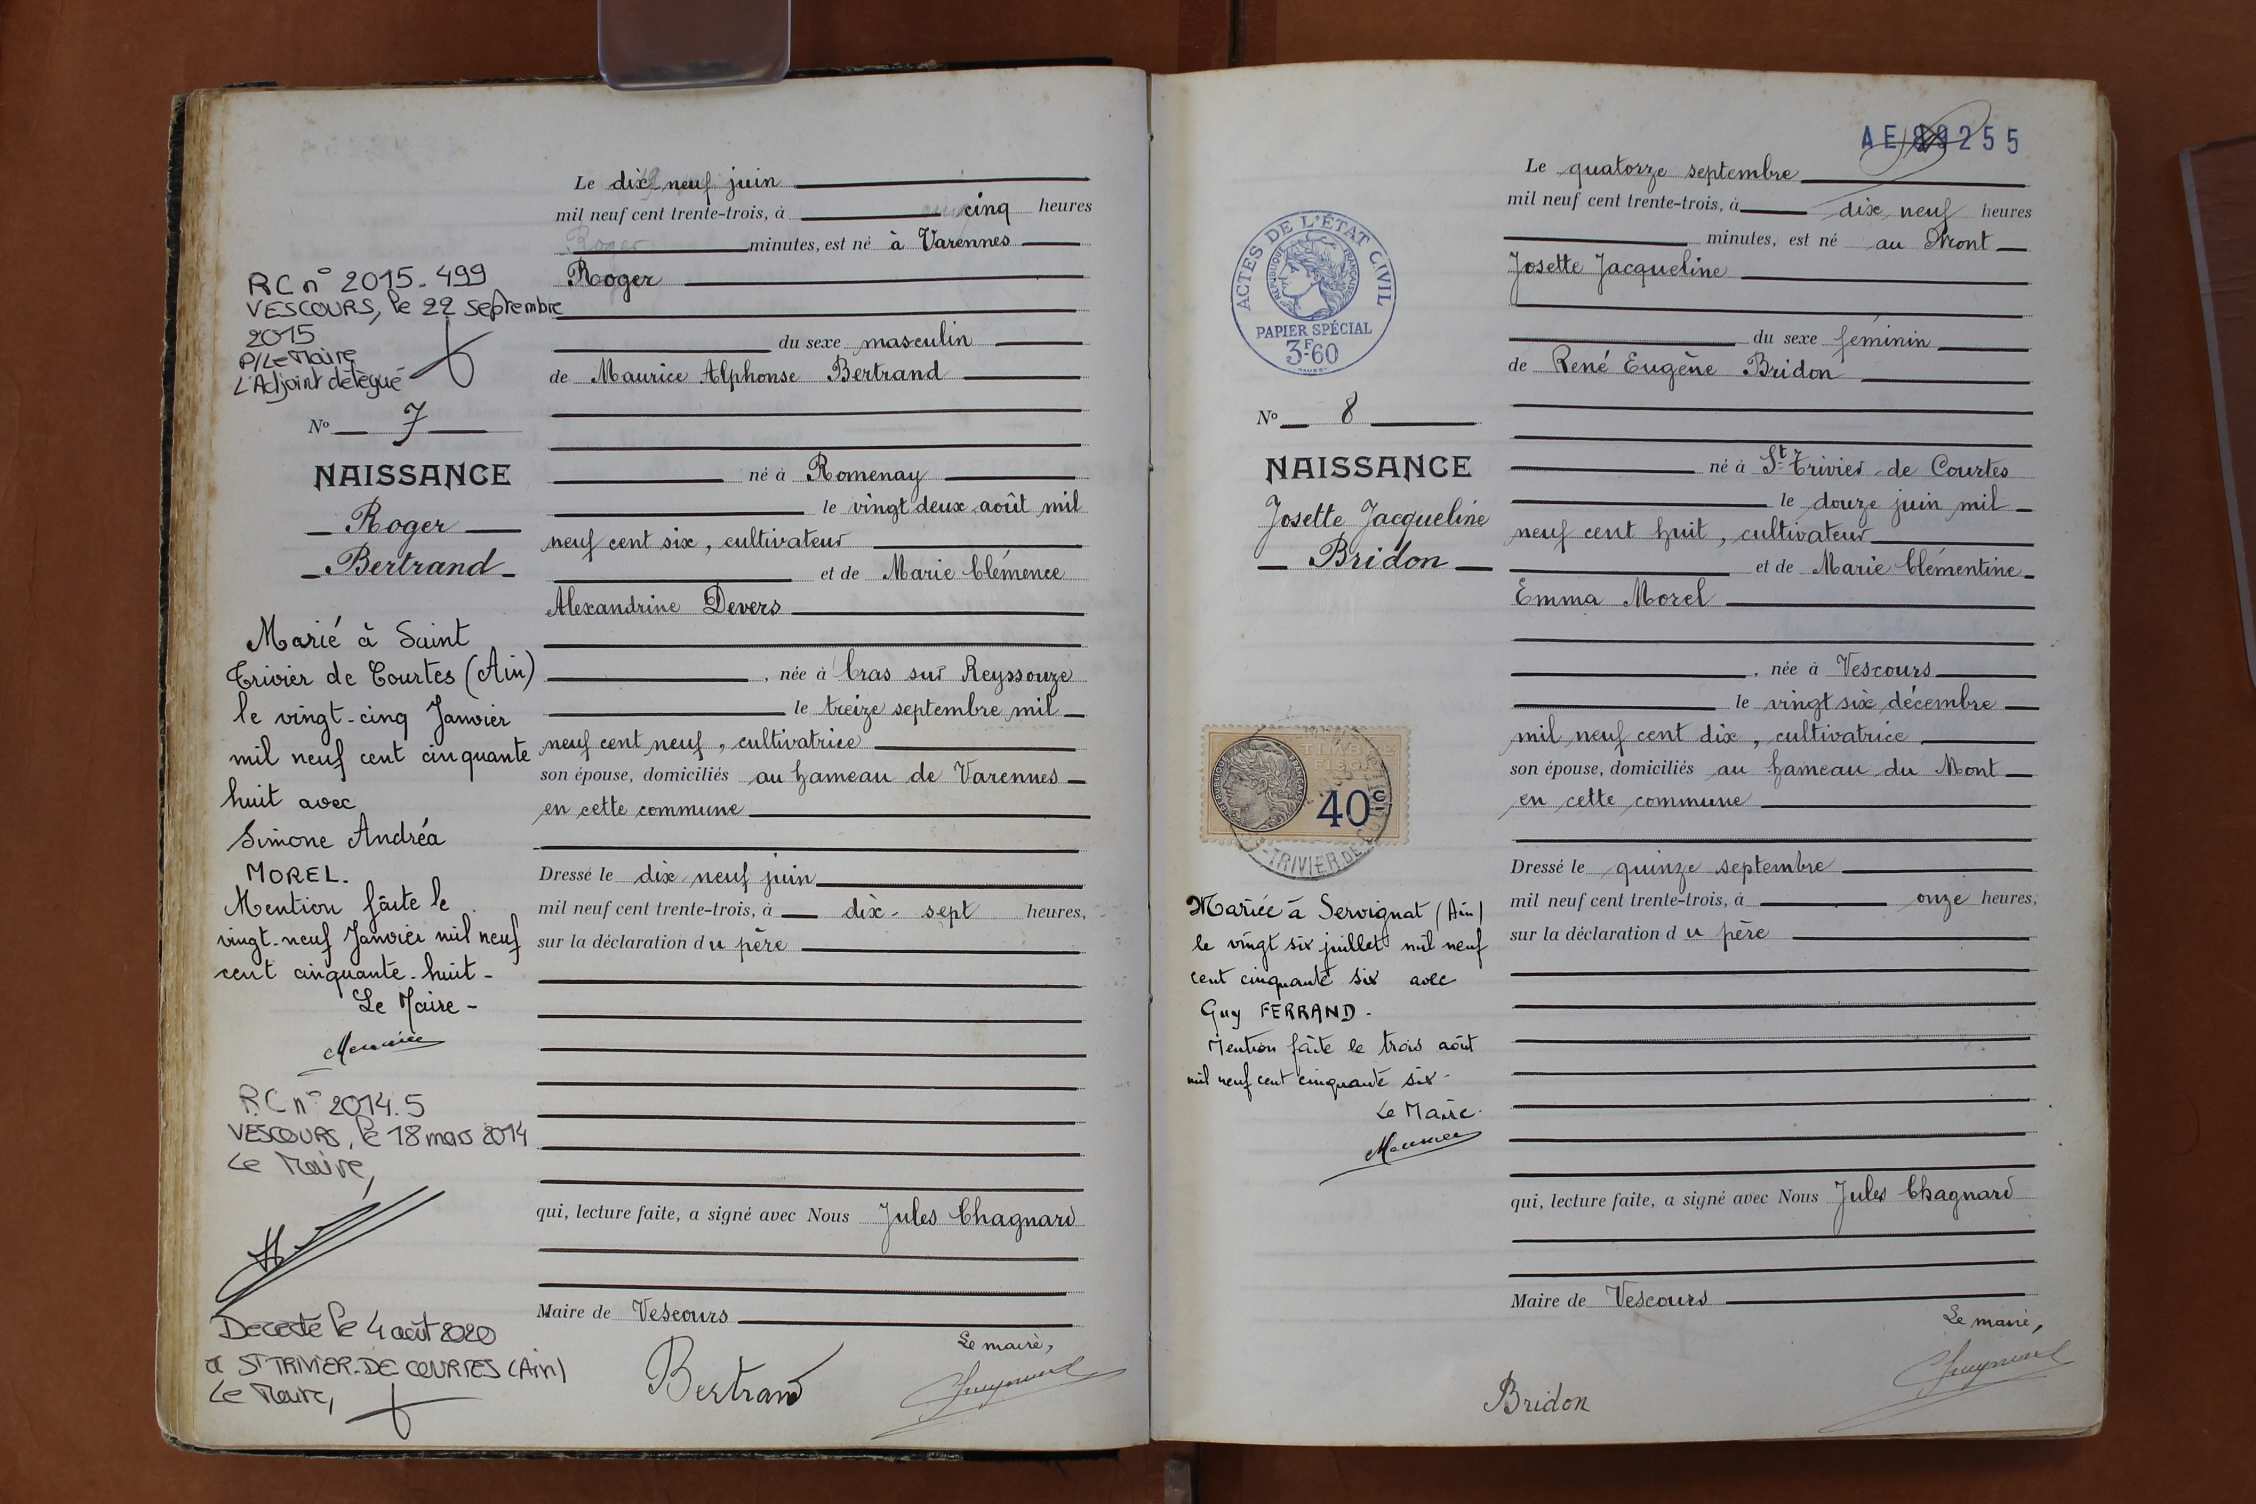 RC n° 2015-499
VESCOURS, le 22 septembre
2015
P/Le Maire
L'Adjoint délégué
N° 7
NAISSANCE
Roger
Bertrand
Marié à Saint
Trivier de Courtes (Ain)
le vingt-cinq Janvier
mil neuf cent cinquante
huit avec
Simone Andréa
MOREL.
Mention faite le
vingt-neuf Janvier mil neuf
cent cinquante-huit-
Le Maire-
Meunier
RC n° 2014.5
VESCOURS, le 18 mars 2014
Le Maire,
Décédé le 4 août 2020
à ST TRIVIER-DE COURTES (Ain)
Le Maire,
Le dix neuf juin
mil neuf cent trente-trois, à cinq heures
minutes, est né à Varennes
Roger
du sexe masculin
de Maurice Alphonse Bertrand
né à Romenay
le vingt deux août mil
neuf cent six, cultivateur
et de Marie Clémence
Alexandrine Devers
, née à Cras sur Reyssouze
le treize septembre mil
neuf cent neuf, cultivatrice
son épouse, domiciliés au hameau de Varennes
en cette commune
Dressé le dix neuf juin
mil neuf cent trente-trois, à dix-sept heures,
sur la déclaration du père
qui, lecture faite, a signé avec Nous Jules Chagnard
Maire de Vescours
Le maire,
Bertrand
AE 255
ACTES DE L'ÉTAT CIVIL
RÉPUBLIQUE FRANÇAISE
PAPIER SPÉCIAL
3F.60
N° 8
NAISSANCE
Josette Jacqueline
Bridon
TIMBRE
FISCAL
RÉPUBLIQUE FRANÇAISE
40c
-TRIVIER DE COURTES
Mariée à Servignat (Ain)
le vingt six juillet mil neuf
cent cinquante six avec
Guy FERRAND.
Mention faite le trois août
mil neuf cent cinquante six-
Le Maire.
Meunier
Le quatorze septembre
mil neuf cent trente-trois, à dix neuf heures
minutes, est né au Mont
Josette Jacqueline
du sexe féminin
de René Eugène Bridon
né à St Trivier de Courtes
le douze juin mil
neuf cent huit, cultivateur
et de Marie Clémentine
Emma Morel
, née à Vescours
le vingt six décembre
mil neuf cent dix, cultivatrice
son épouse, domiciliés au hameau du Mont
en cette commune
Dressé le quinze septembre
mil neuf cent trente-trois, à onze heures,
sur la déclaration du père
qui, lecture faite, a signé avec Nous Jules Chagnard
Maire de Vescours
Le maire,
Bridon